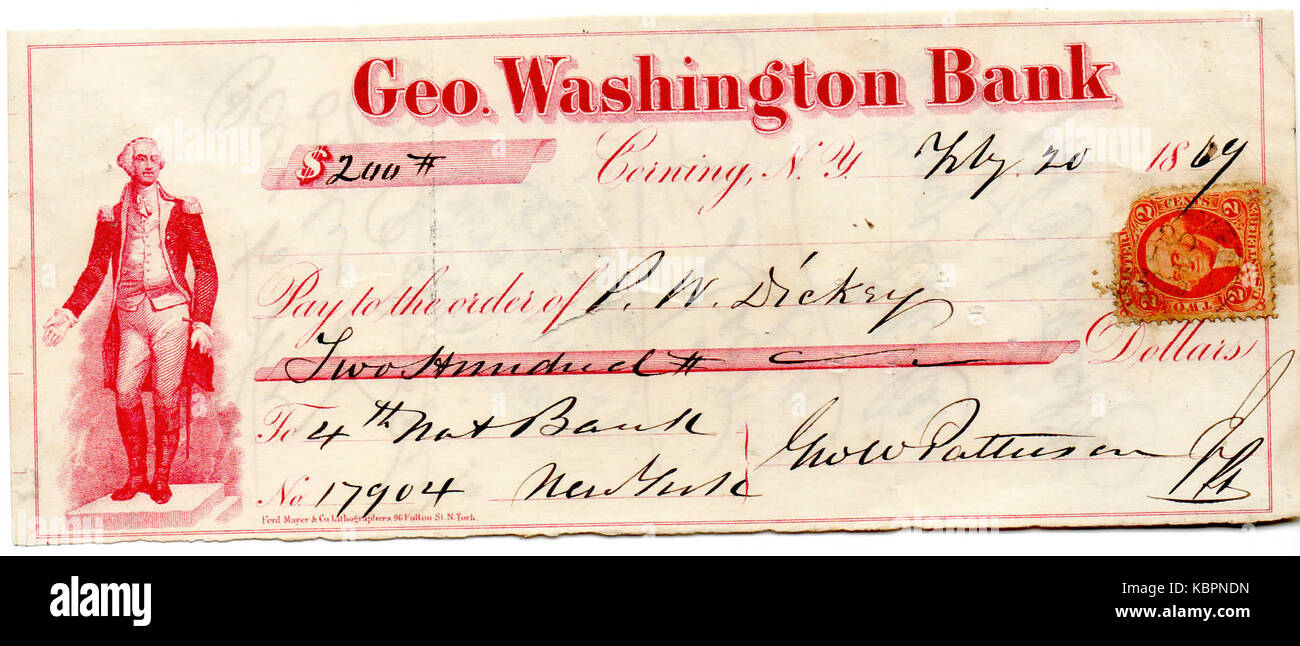 Geo. Washington Bank
$200 #
Corning, N.Y. Feby. 20 1869
Pay to the order of P. W. Dickey
Two Hundred # Dollars
To 4th Nat Bank
No. 17904 New York
Geo W Patterson Jr
Ferd. Mayer & Co. Lithographers, 96 Fulton St. N. York.
2 CENTS 2
U.S. INTER. REV.
TWO
alamy
Image ID: KBPNDN
www.alamy.com